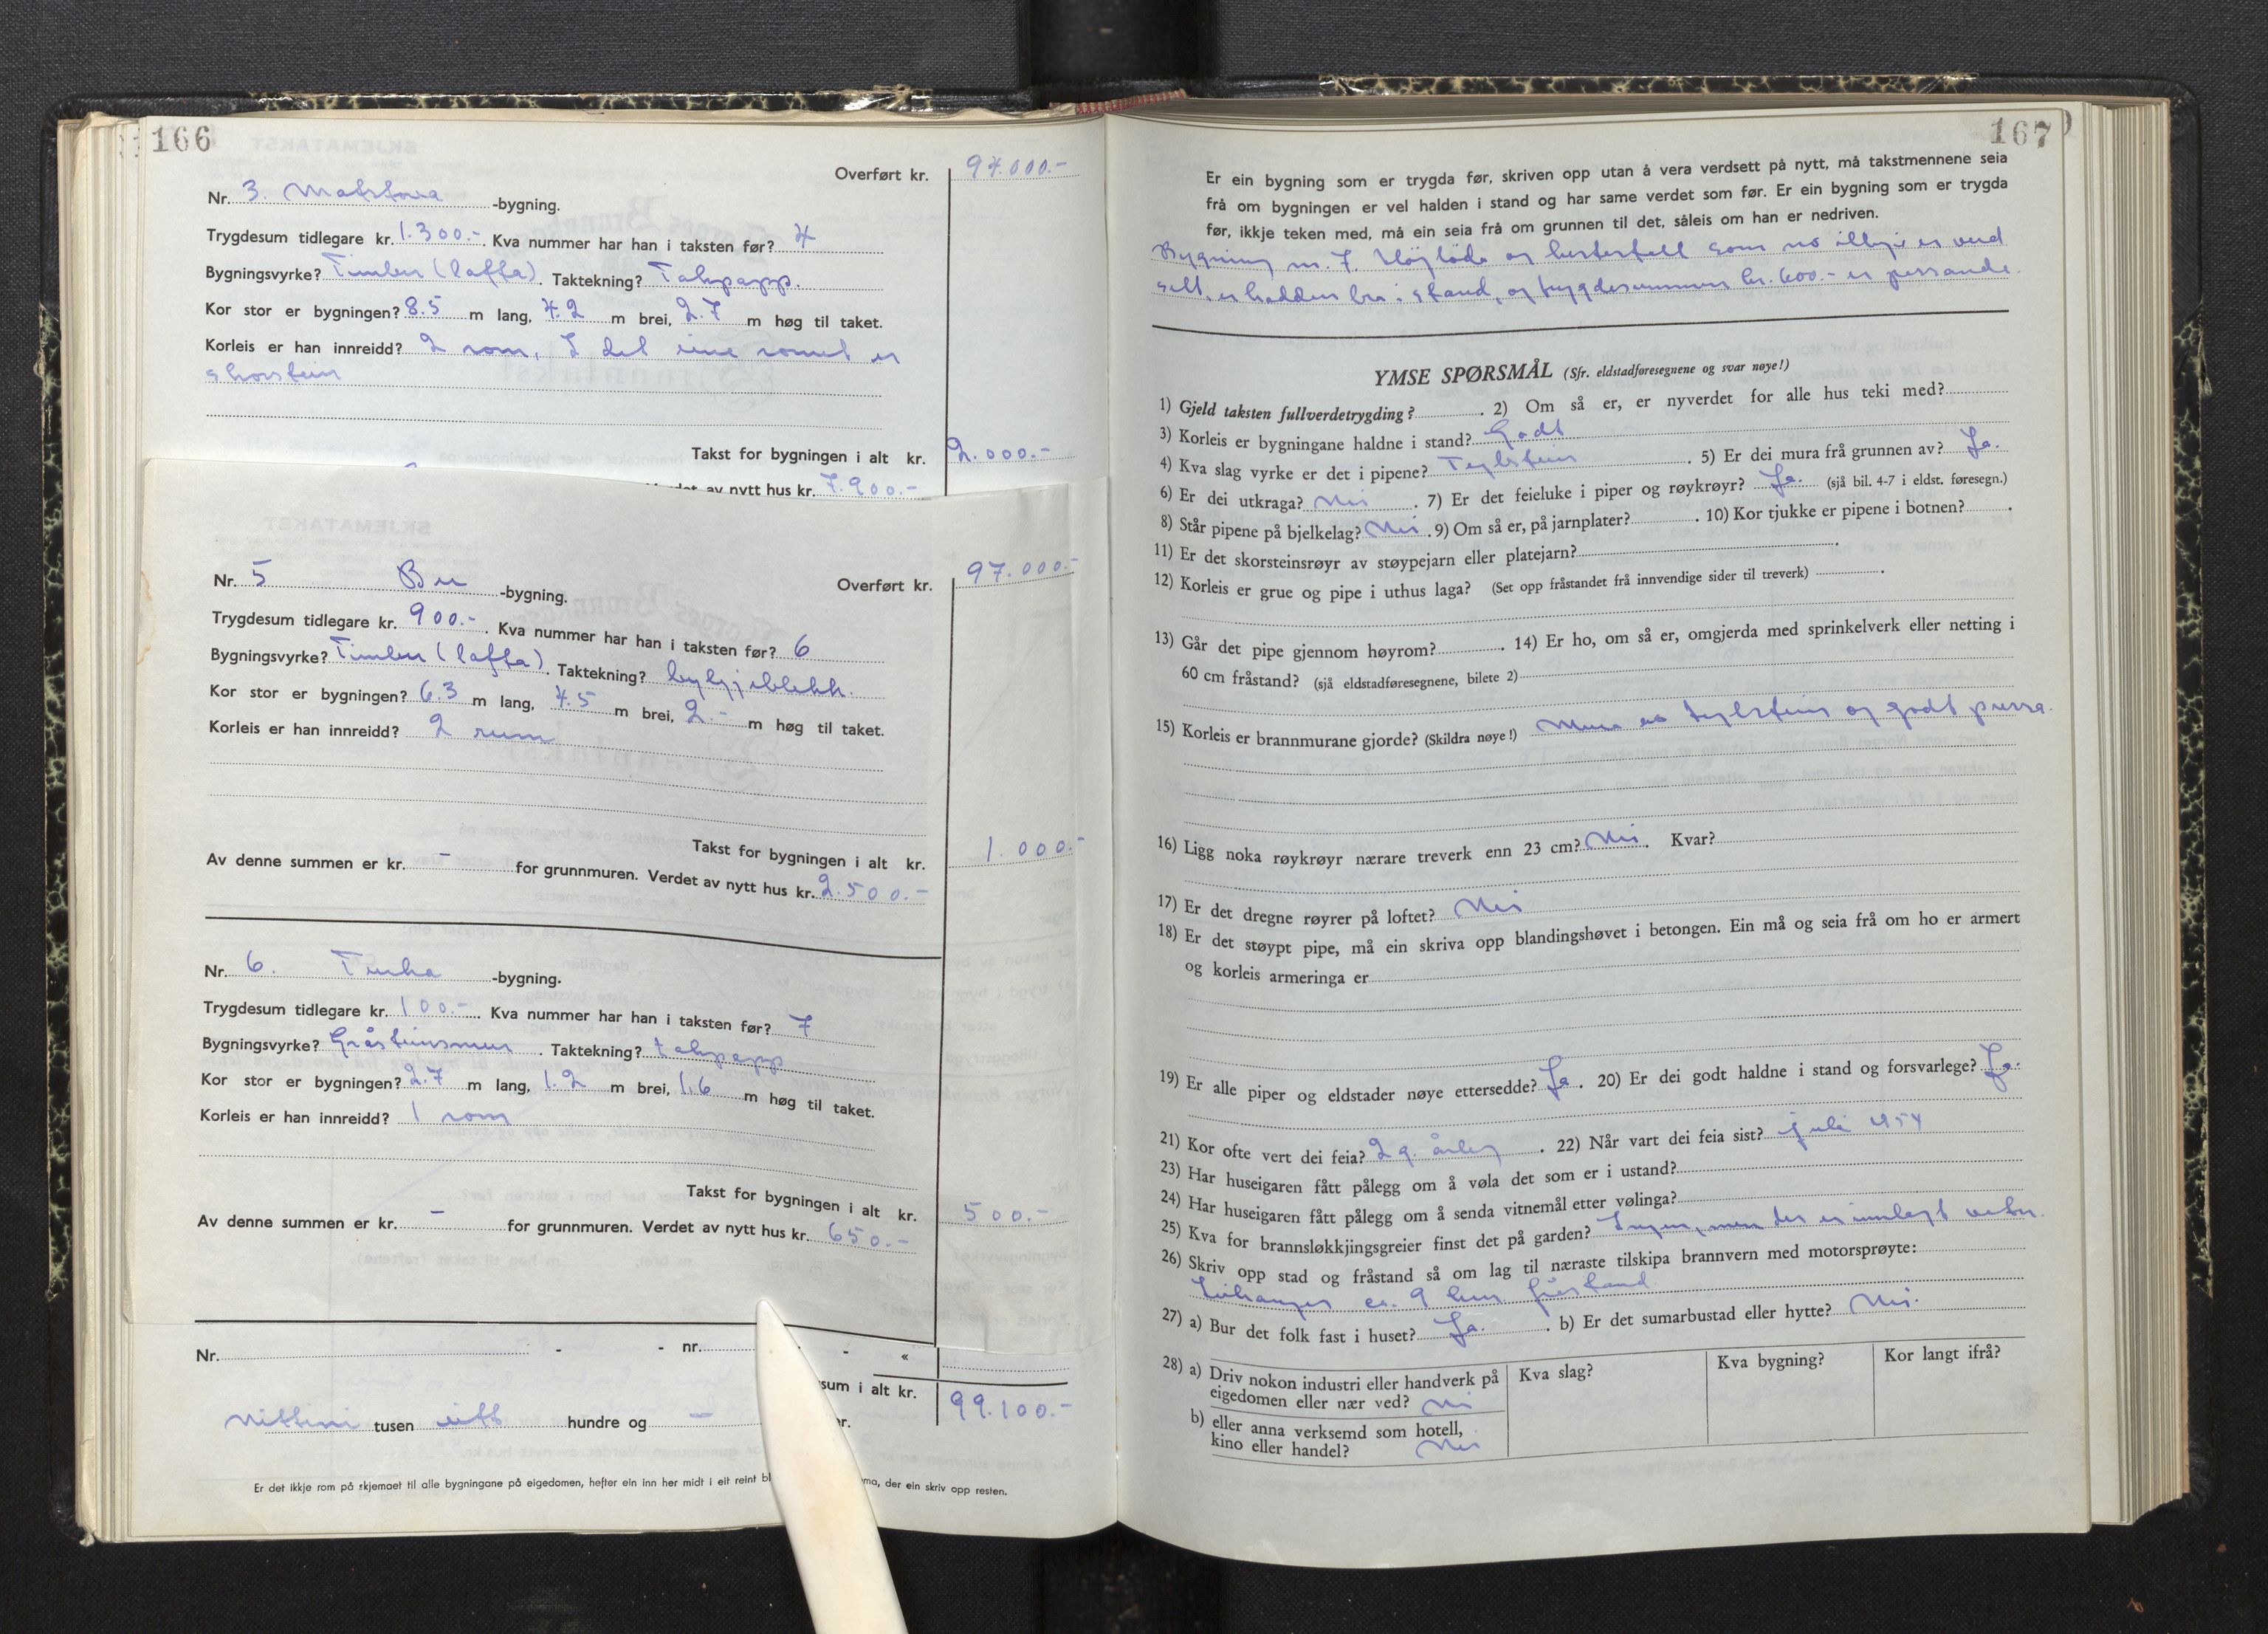 166
Overført kr. 94.000.-
Nr. 3. Matstova -bygning.
Trygdesum tidlegare kr. 1.300.- Kva nummer har han i taksten før? 4
Bygningsvyrke? Timber (lafta). Taktekning? Takpapp.
Kor stor er bygningen? 8.5 m lang, 4.2 m brei, 2.7 m høg til taket.
Korleis er han innreidd? 2 rom, I det eine romet er
skorstein
Takst for bygningen i alt kr. 2.000.-
av nytt hus kr. 7.900.-
Nr. 5 Bu -bygning.
Overført kr. 97.000.-
Trygdesum tidlegare kr. 900.- . Kva nummer har han i taksten før? 6
Bygningsvyrke? Timber (lafta). Taktekning? bylgjeblekk.
Kor stor er bygningen? 6.3 m lang, 4.5 m brei, 2.- m høg til taket.
Korleis er han innreidd? 2 rum
Takst for bygningen i alt kr. 1.000.-
Av denne summen er kr. - for grunnmuren. Verdet av nytt hus kr. 2.500.-
Nr. 6. Turka -bygning.
Trygdesum tidlegare kr. 100.- . Kva nummer har han i taksten før? 7
Bygningsvyrke? Gråsteinsmur . Taktekning? takpapp
Kor stor er bygningen? 2.7 m lang, 1.2 m brei, 1.6 m høg til taket.
Korleis er han innreidd? 1 rom
Takst for bygningen i alt kr. 500.-
Av denne summen er kr. - for grunnmuren. Verdet av nytt hus kr. 650.-
Nr. - - nr. - «
sum i alt kr. 99.100.-
Nittini tusen eitt hundre og - kr.
Er det ikkje rom på skjemaet til alle bygningane på eigedomen, hefter ein inn her midt i eit reint bl ma, der ein skriv opp resten.
167
Er ein bygning som er trygda før, skriven opp utan å vera verdsett på nytt, må takstmennene seia
frå om bygningen er vel halden i stand og har same verdet som før. Er ein bygning som er trygda
før, ikkje teken med, må ein seia frå om grunnen til det, såleis om han er nedriven.
Bygning nr. 7. Høyløda og hestestall som no ikkje er verd
sett, er halden bra i stand, og trygdesummen kr. 600.- er passande.
YMSE SPØRSMÅL (Sfr. eldstadføresegnene og svar nøye!)
1) Gjeld taksten fullverdetrygding? . 2) Om så er, er nyverdet for alle hus teki med?
3) Korleis er bygningane haldne i stand? Godt
4) Kva slag vyrke er det i pipene? Teglstein . 5) Er dei mura frå grunnen av? Ja.
6) Er dei utkraga? Nei . 7) Er det feieluke i piper og røykrøyr? Ja. (sjå bil. 4-7 i eldst. føresegn.)
8) Står pipene på bjelkelag? Nei . 9) Om så er, på jarnplater? . 10) Kor tjukke er pipene i botnen? .
11) Er det skorsteinsrøyr av støypejarn eller platejarn? .
12) Korleis er grue og pipe i uthus laga? (Set opp fråstandet frå innvendige sider til treverk) .
13) Går det pipe gjennom høyrom? . 14) Er ho, om så er, omgjerda med sprinkelverk eller netting i
60 cm fråstand? (sjå eldstadføresegnene, bilete 2)
15) Korleis er brannmurane gjorde? (Skildra nøye!) Mura av teglstein og godt pussa.
16) Ligg noka røykrøyr nærare treverk enn 23 cm? Nei . Kvar?
17) Er det dregne røyrer på loftet? Nei
18) Er det støypt pipe, må ein skriva opp blandingshøvet i betongen. Ein må og seia frå om ho er armert
og korleis armeringa er
19) Er alle piper og eldstader nøye ettersedde? Ja . 20) Er dei godt haldne i stand og forsvarlege? Ja.
21) Kor ofte vert dei feia? 2 g. årleg . 22) Når vart dei feia sist? juli 1954
23) Har huseigaren fått pålegg om å vøla det som er i ustand?
24) Har huseigaren fått pålegg om å senda vitnemål etter vølinga?
25) Kva for brannsløkkjingsgreier finst det på garden? Ingen, men der er innlagt vatn.
26) Skriv opp stad og fråstand så om lag til næraste tilskipa brannvern med motorsprøyte:
Leikanger ca. 9 km fråstand
27) a) Bur det folk fast i huset? Ja. . b) Er det sumarbustad eller hytte? Nei.
28) a) Driv nokon industri eller handverk på
eigedomen eller nær ved? Nei
Kva slag?
Kva bygning?
Kor langt ifrå?
b) eller anna verksemd som hotell,
kino eller handel? Nei